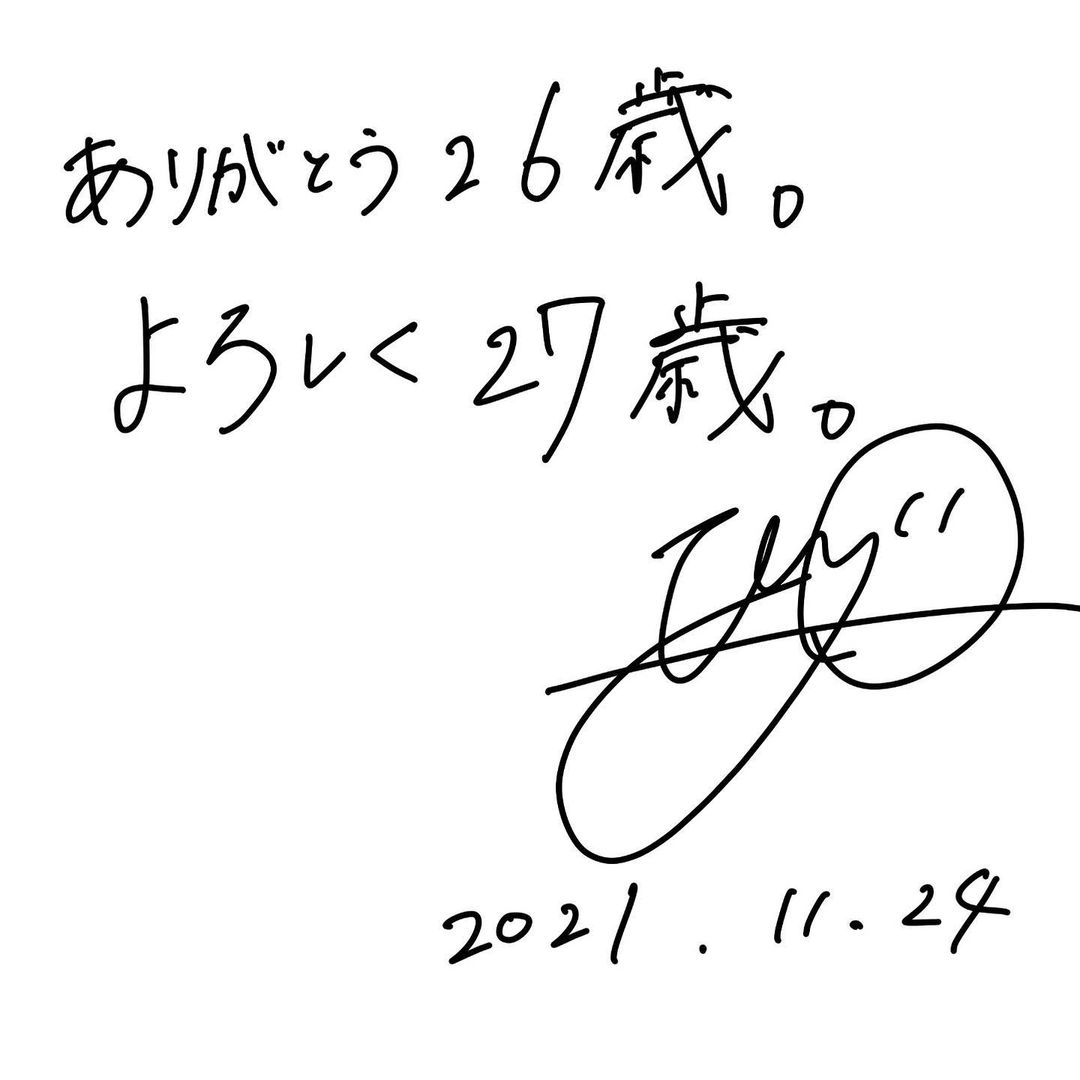 ありがとう26歳。
よろしく27歳。
2021.11.24